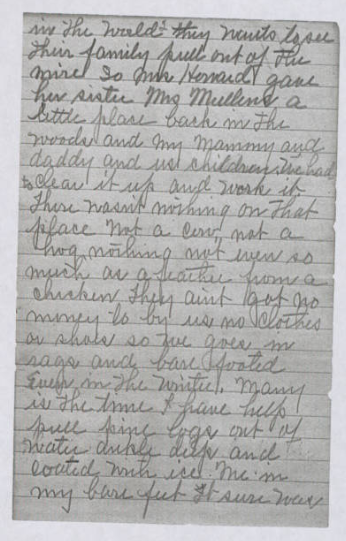 in the world they wants to see
their family pull out of the
mire So Mrs Howard gave
her sister Mrs Mullens a
little place back in the
woods and my mammy and
daddy and us children. We had
to clear it up and work it
There wasn't nothing on that
place not a cow, not a
hog nothing not even so
much as a feather from a
chicken They aint got no
money to by us no clothes
or shoes so we goes in
rags and bare footed
Even in the winter. Many
is the time I have help
pull pine logs out of
water ankle deep and
coated with ice me in
my bare feet It sure was